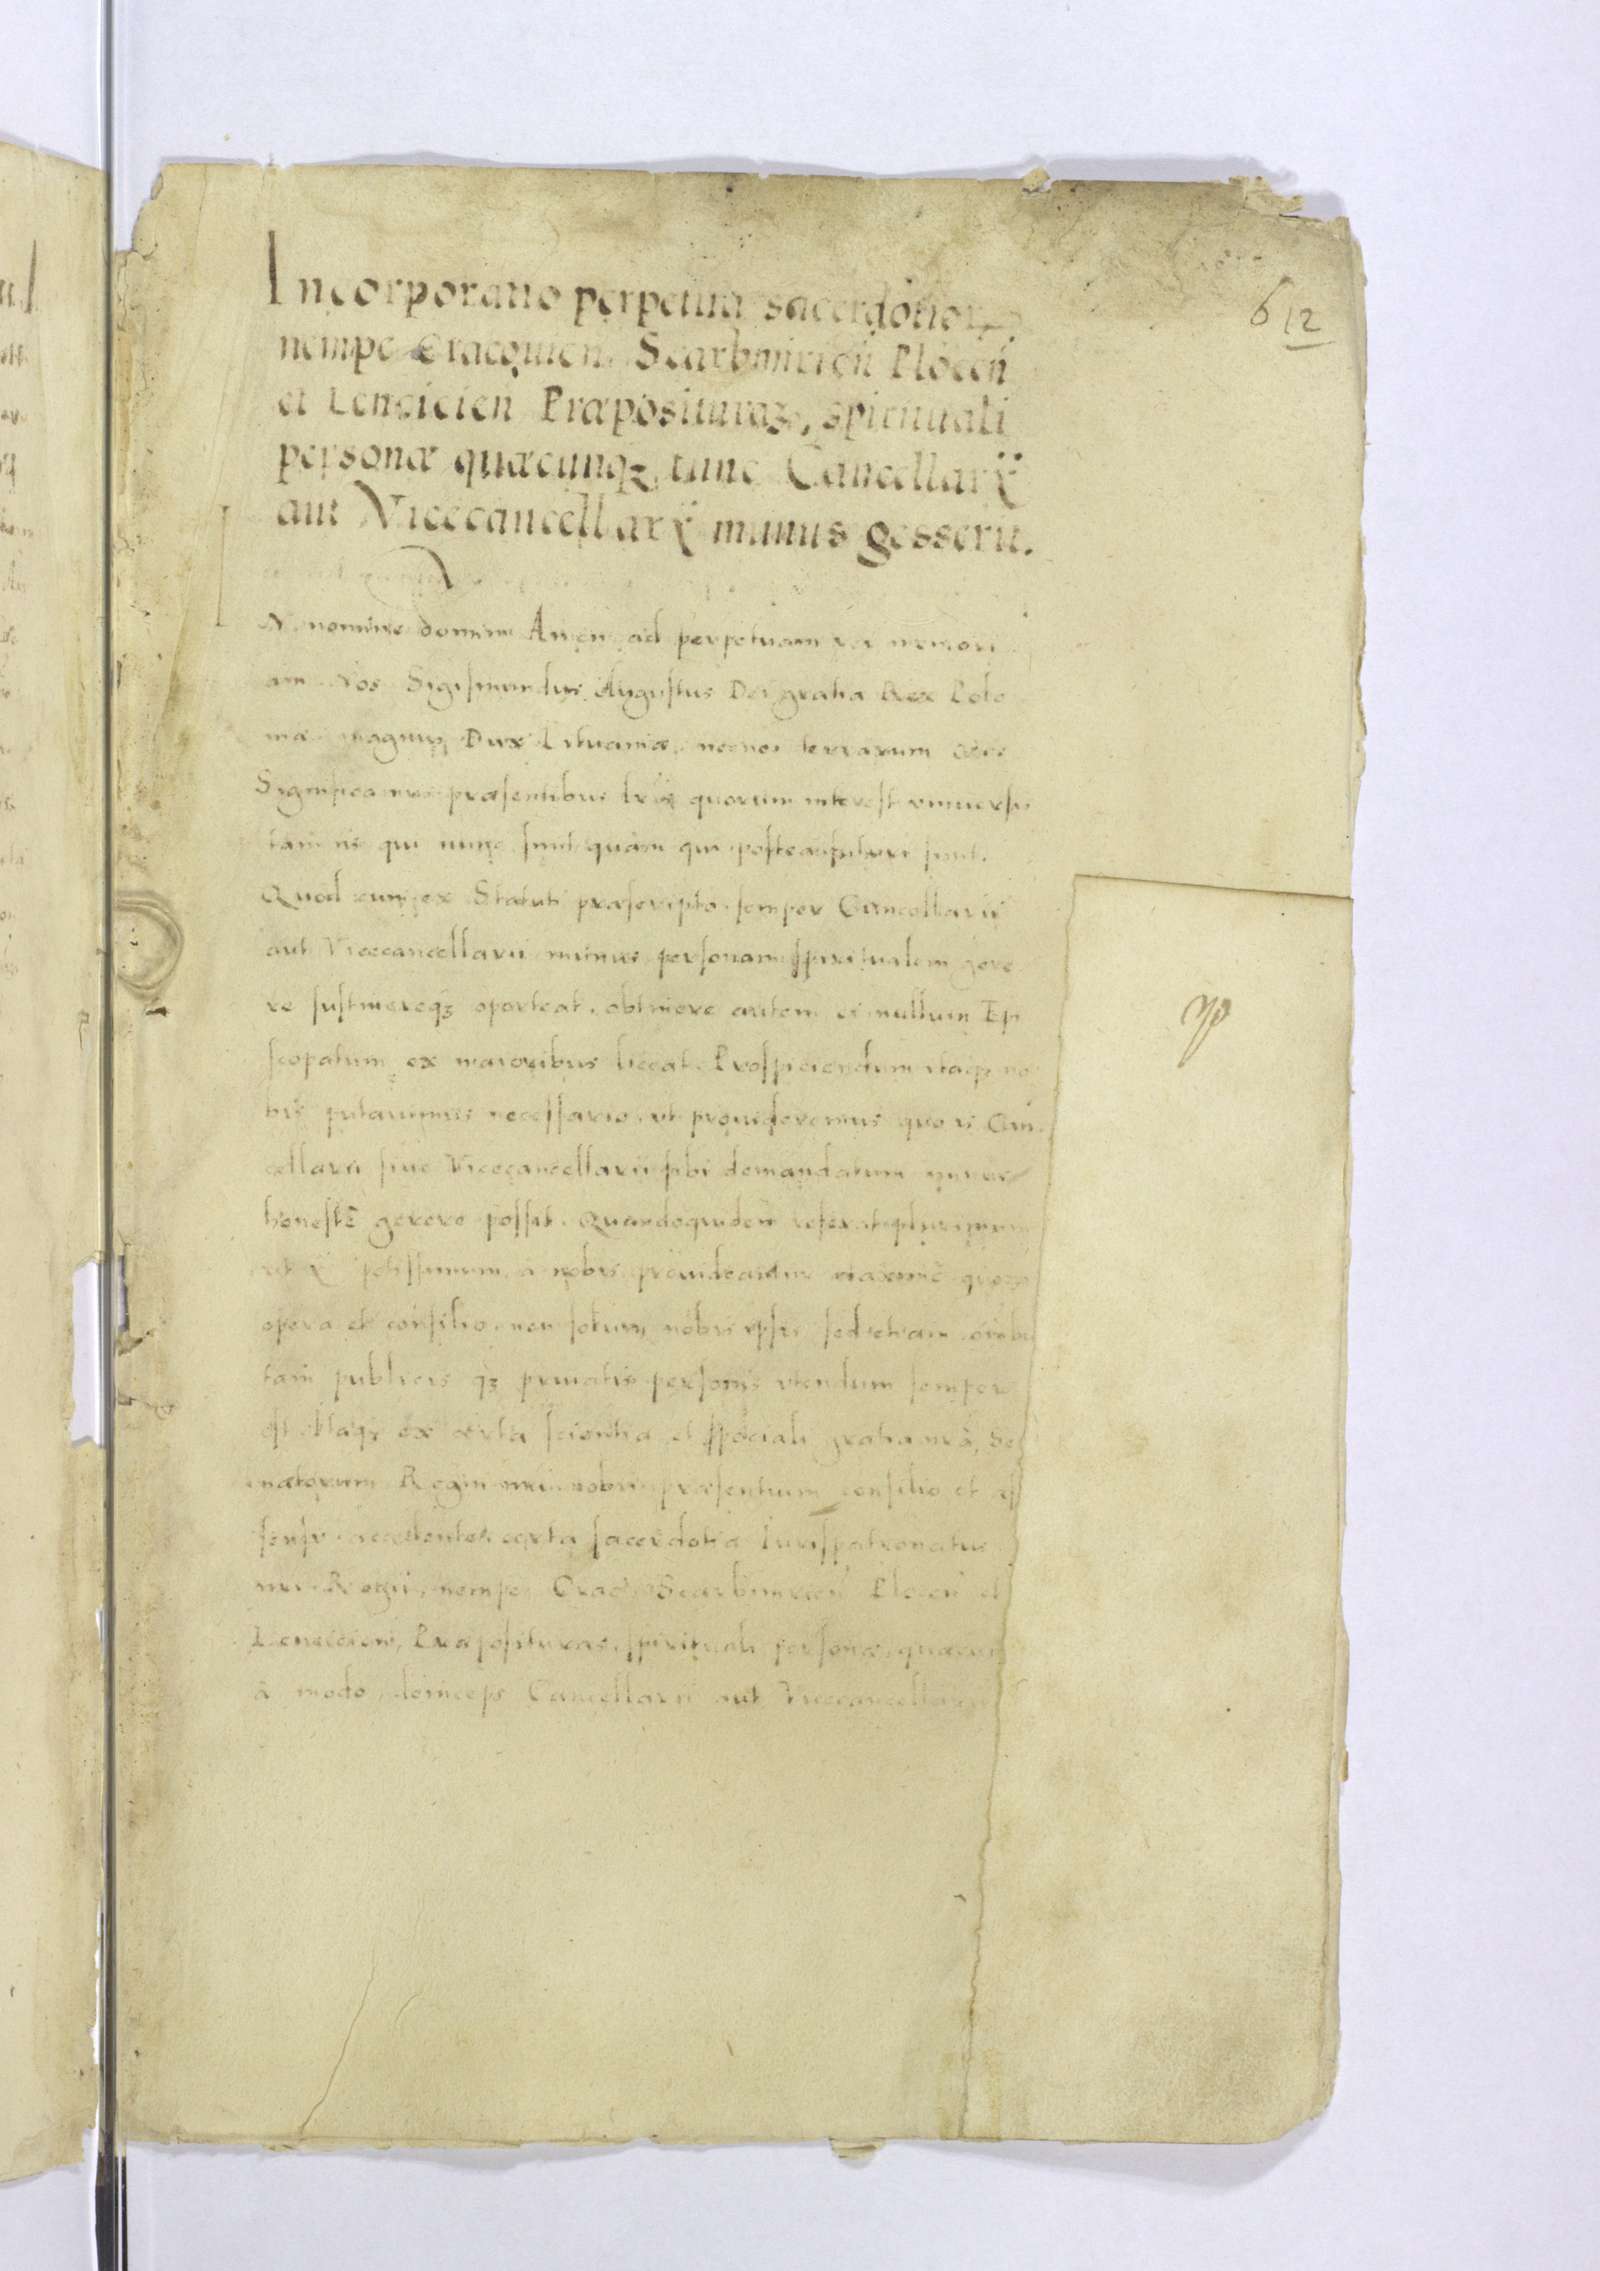 Incorporatio perpetua sacerdotior
nempe Cracouien. Scarbimirien Plocen
et Lencicien Præposituraꝝ, spirituali
personæ quæcunqꝫ tunc Cancellarÿ
aut Vicecancellarÿ munus gesserit.
6 12
N nomine domini Amen ad perpetuam rei memori
am Nos Sigismundus Augustus Dei gratia Rex Polo
niæ magnus Dux Lituaniæ, necnon terrarum
Significamus præsentibus lris quorum interest vniuersis
tam iis qui nunc sunt quàm qui postea futuri sunt.
Quod cum ex Statuti præscripto semper Cancellarii
aut Vicecancellarii munus personam spiritualem gere
re sustinereqꝫ oporteat, obtinere autem ei nullum Epi
scopatum ex maioribus liceat. Prospiciendum itaqꝫ no
bis putauimus necessario, vt prouideremus quo is Can
cellarii siue Vicecancellarii sibi demandatum munus
honestè gerere possit. Quandoquidem referat plurimum
vt potissimum a nobis prouideantur
opera et consilio, non solum nobis ipsis sed etiam oibus
tam publicis qꝫ priuatis personis vtendum semper
est Itaqꝫ ex certa scientia et speciali gratia nrã, Se
natorum Regni nri nobis præsentium consilio et as
sensu accedente, certa sacerdotia Iurispatronatus
nri Regii, nempe Crac Scarbimirien Plocen et
Lencicien, Præposituras, spirituali personæ, quæcun
à modo deinceps Cancellarii aut Vicecancellarii